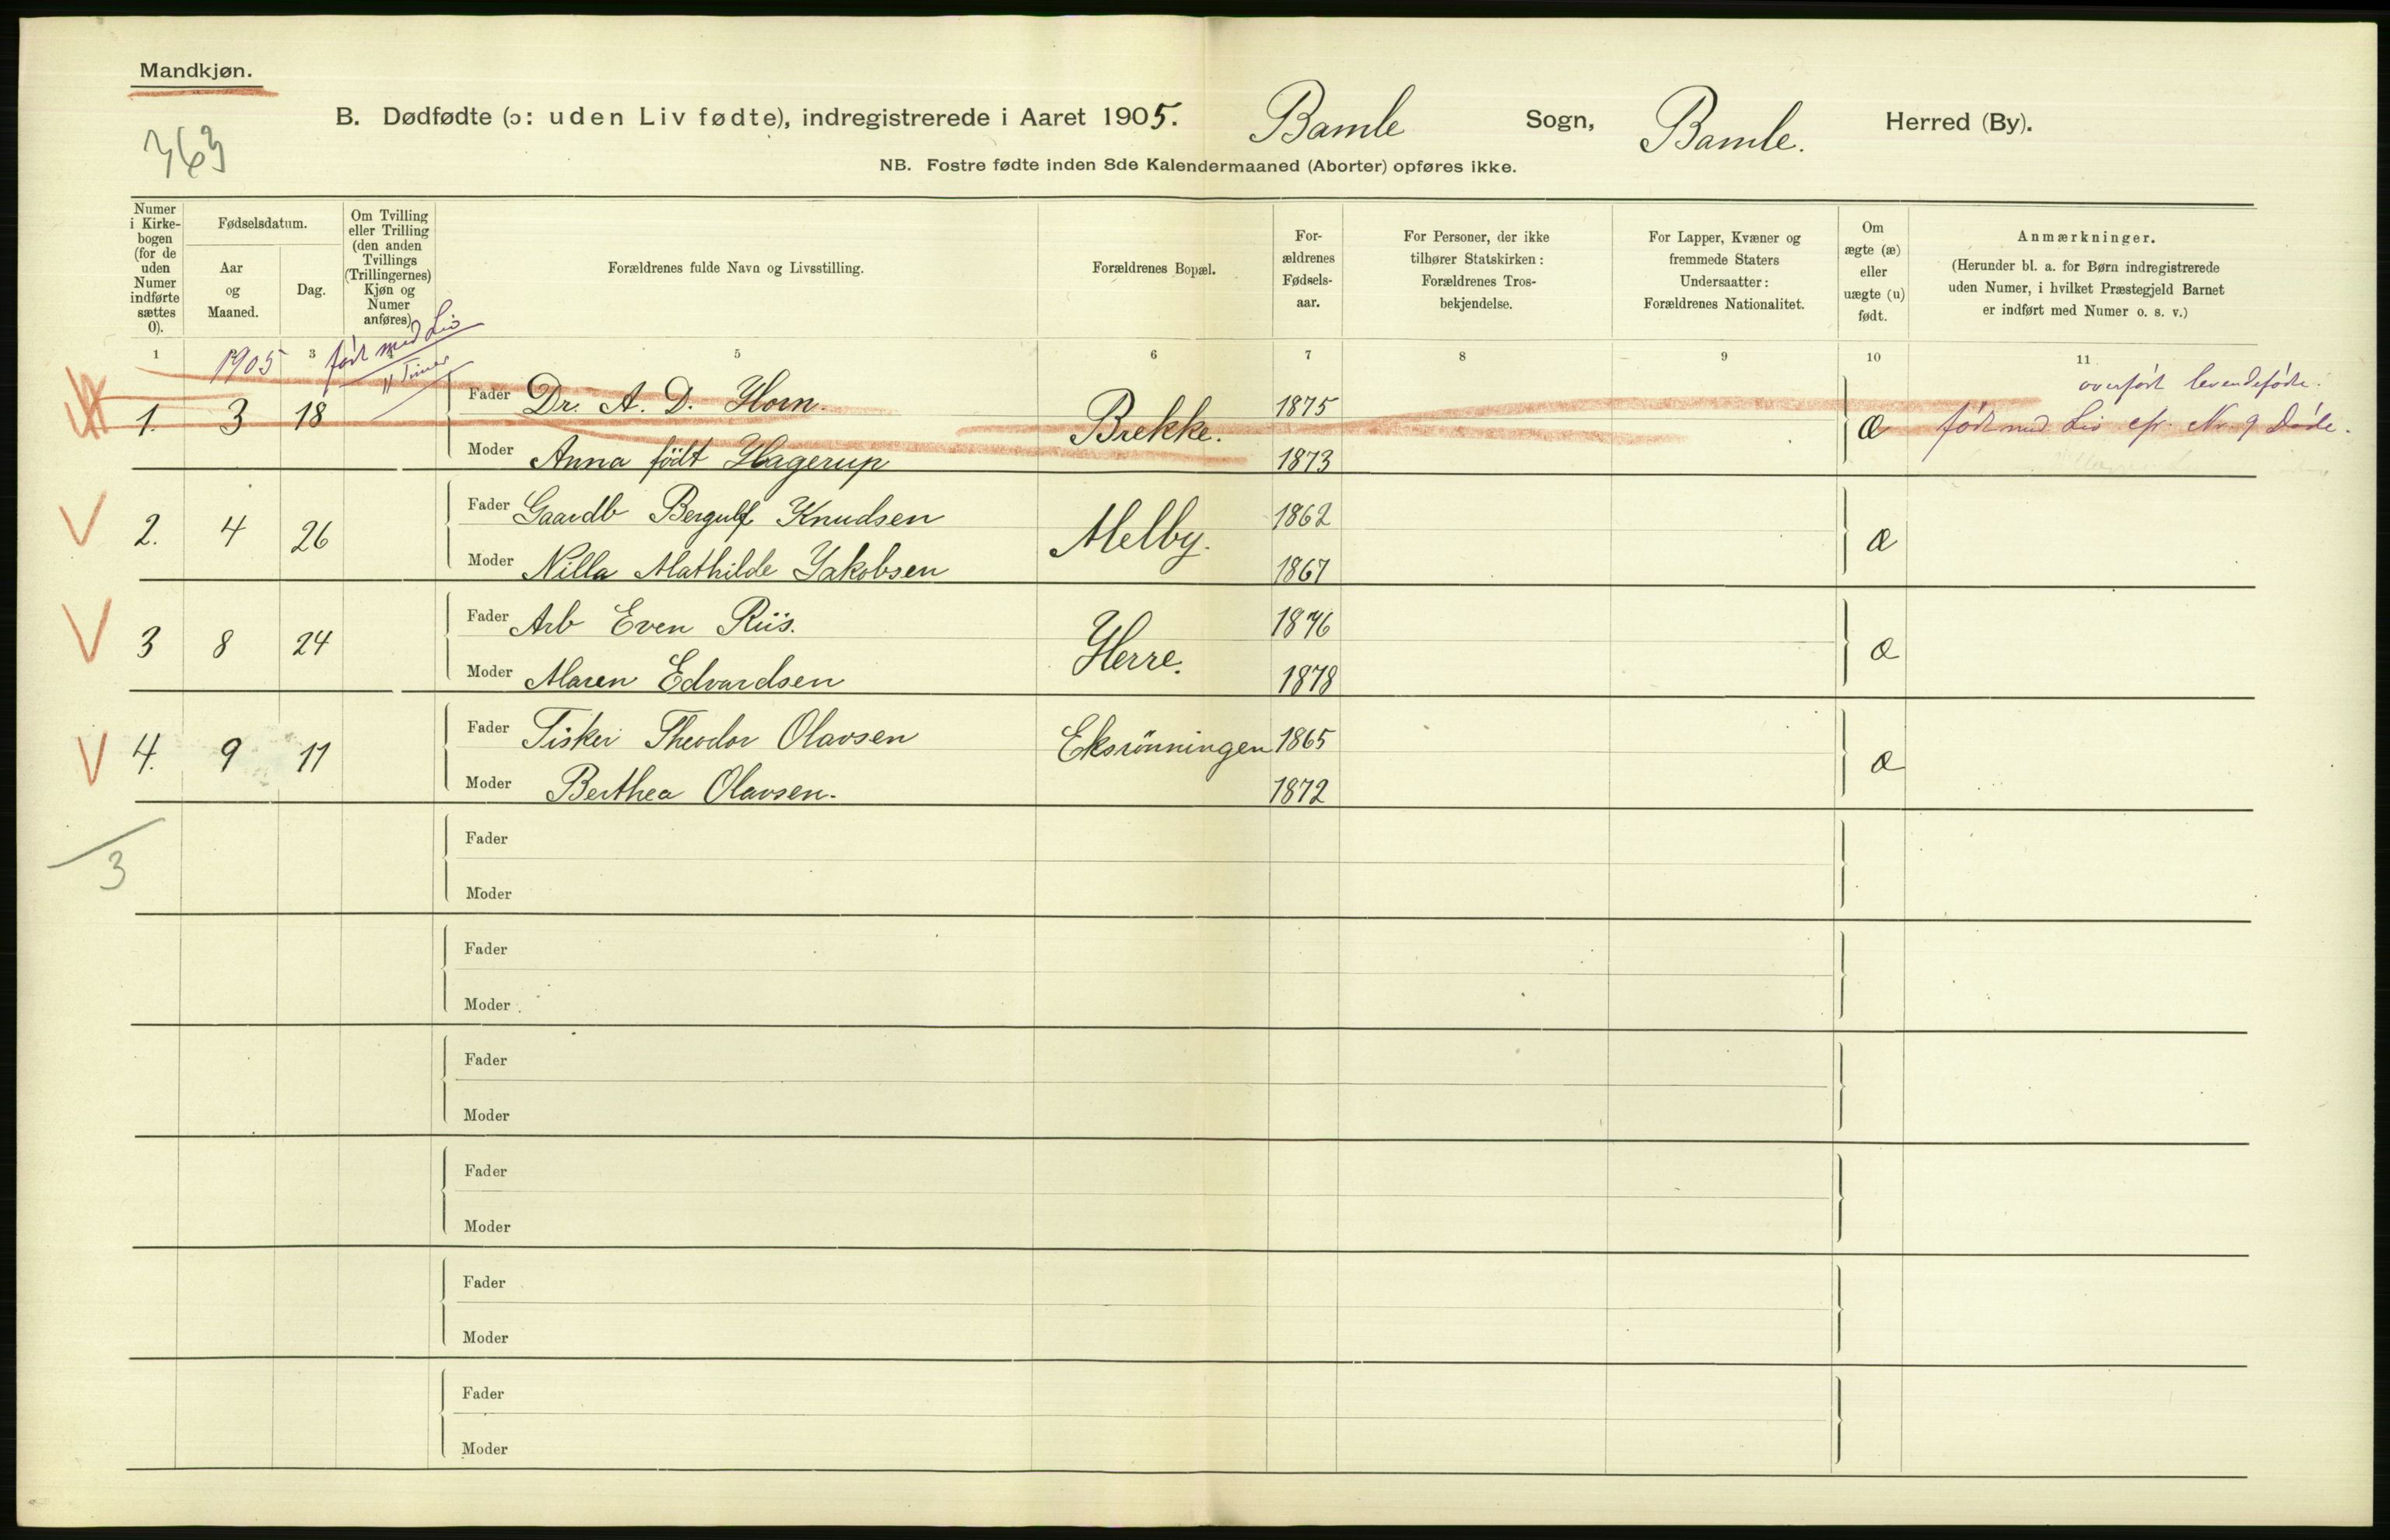 Mandkjøn.
B. Dødfødte (ɔ: uden Liv fødte), indregistrerede i Aaret 1905. Bamle Sogn, Bamle. Herred (By).
363
NB. Fostre fødte inden 8de Kalendermaaned (Aborter) opføres ikke.
Numer i Kirkebogen (for de uden Numer indførte sættes 0).
Fødselsdatum.
Aar og Maaned.
Dag.
Om Tvilling eller Trilling (den anden Tvillings (Trillingernes) Kjøn og Numer anføres).
Forældrenes fulde Navn og Livsstilling.
Forældrenes Bopæl.
For-ældrenes Fødsels-aar.
For Personer, der ikke tilhører Statskirken: Forældrenes Tros-bekjendelse.
For Lapper, Kvæner og fremmede Staters Undersaatter: Forældrenes Nationalitet.
Om ægte (æ) eller uægte (u) født.
Anmærkninger.
(Herunder bl. a. for Børn indregistrerede uden Numer, i hvilket Præstegjeld Barnet er indført med Numer o. s. v.)
1 3 5 6 7 8 9 10 11
1905 født med Liv
11 Timer
overført levendefødte.
1. 3 18 Fader Dr. A. D. Horn. Brekke. 1875 æ født med Liv cfr. Nr. 9 Døde.
Moder Anna født Hagerup 1873
2. 4 26 Fader Gaardb Bergulf Knudsen Melby. 1862 æ
Moder Nilla Mathilde Jakobsen 1867
3 8 24 Fader Arb Even Riis. Herre. 1876 æ
Moder Maren Edvardsen 1878
4. 9 11 Fader Fisker Theodor Olavsen Eksrönningen 1865 æ
Moder Berthea Olavsen. 1872
3
Fader
Moder
Fader
Moder
Fader
Moder
Fader
Moder
Fader
Moder
Fader
Moder